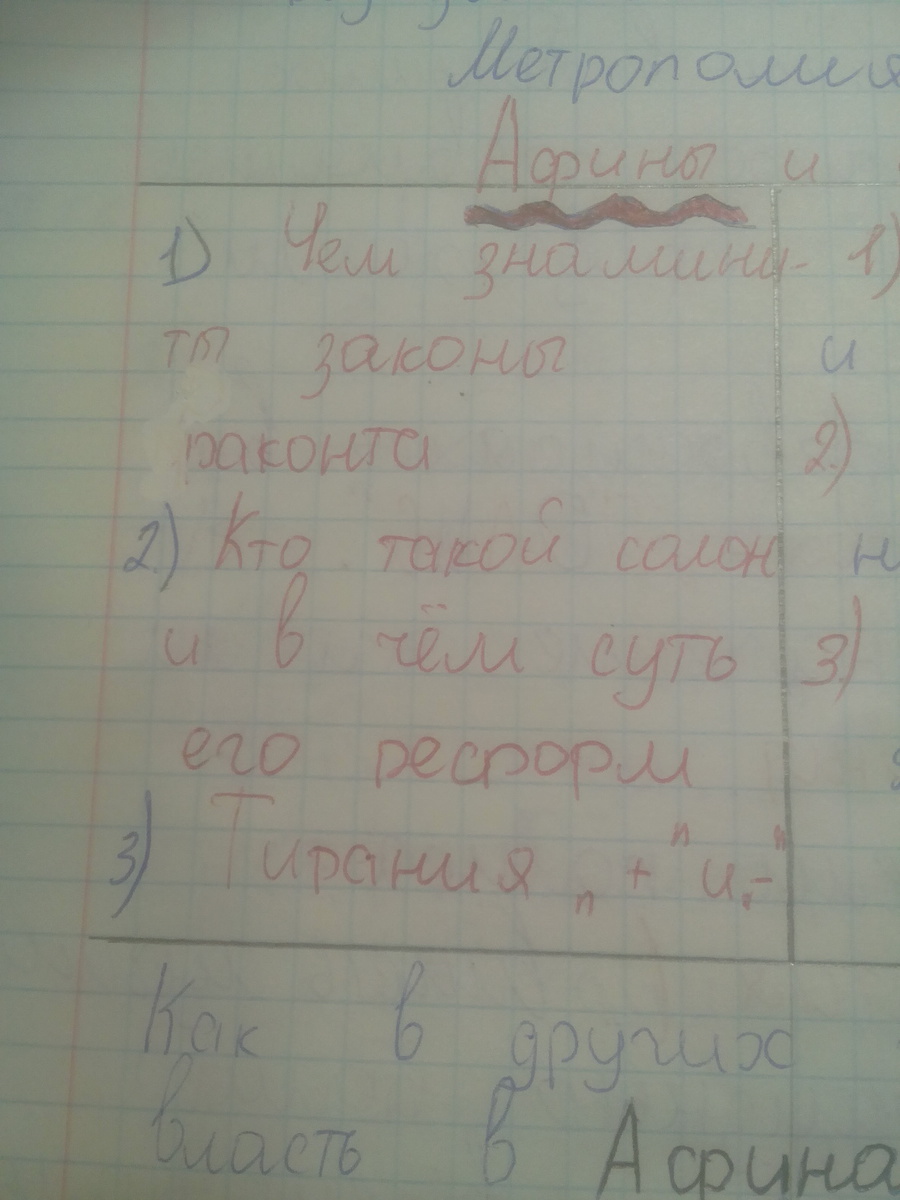 Метрополия
Афины и
1) Чем знамини- 1)
ты законы и
раконта 2)
2) Кто такой солон н
и в чём суть 3)
его реформ
3) Тирания „+" и „-"
Как в других
власть в Афина